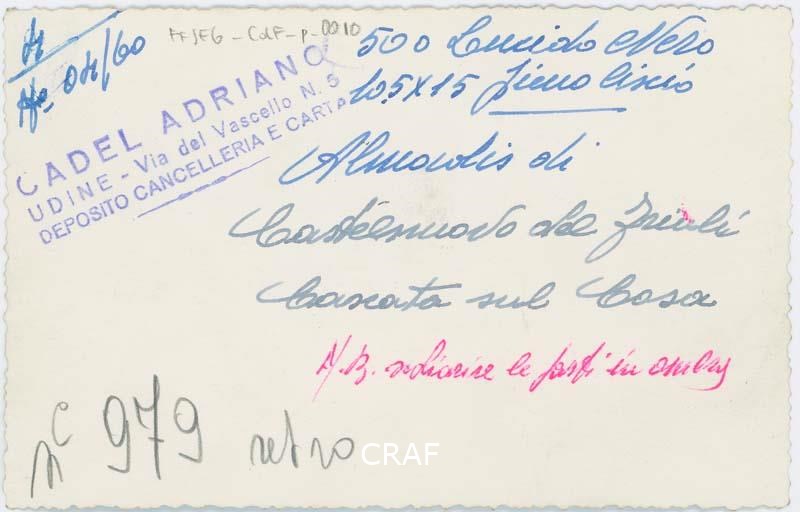 FFSEG - CdF - p - 0010
N° 04/60
500 Lucido Nero
10,5x15 Pieno liscio
CADEL ADRIANO
UDINE - Via del Vascello N. 5
DEPOSITO CANCELLERIA E CARTA
Almadis di
Castelnuovo del Friuli
Cascata sul Cosa
N.B. schiarire le parti in ombra
n° 979 retro
CRAF